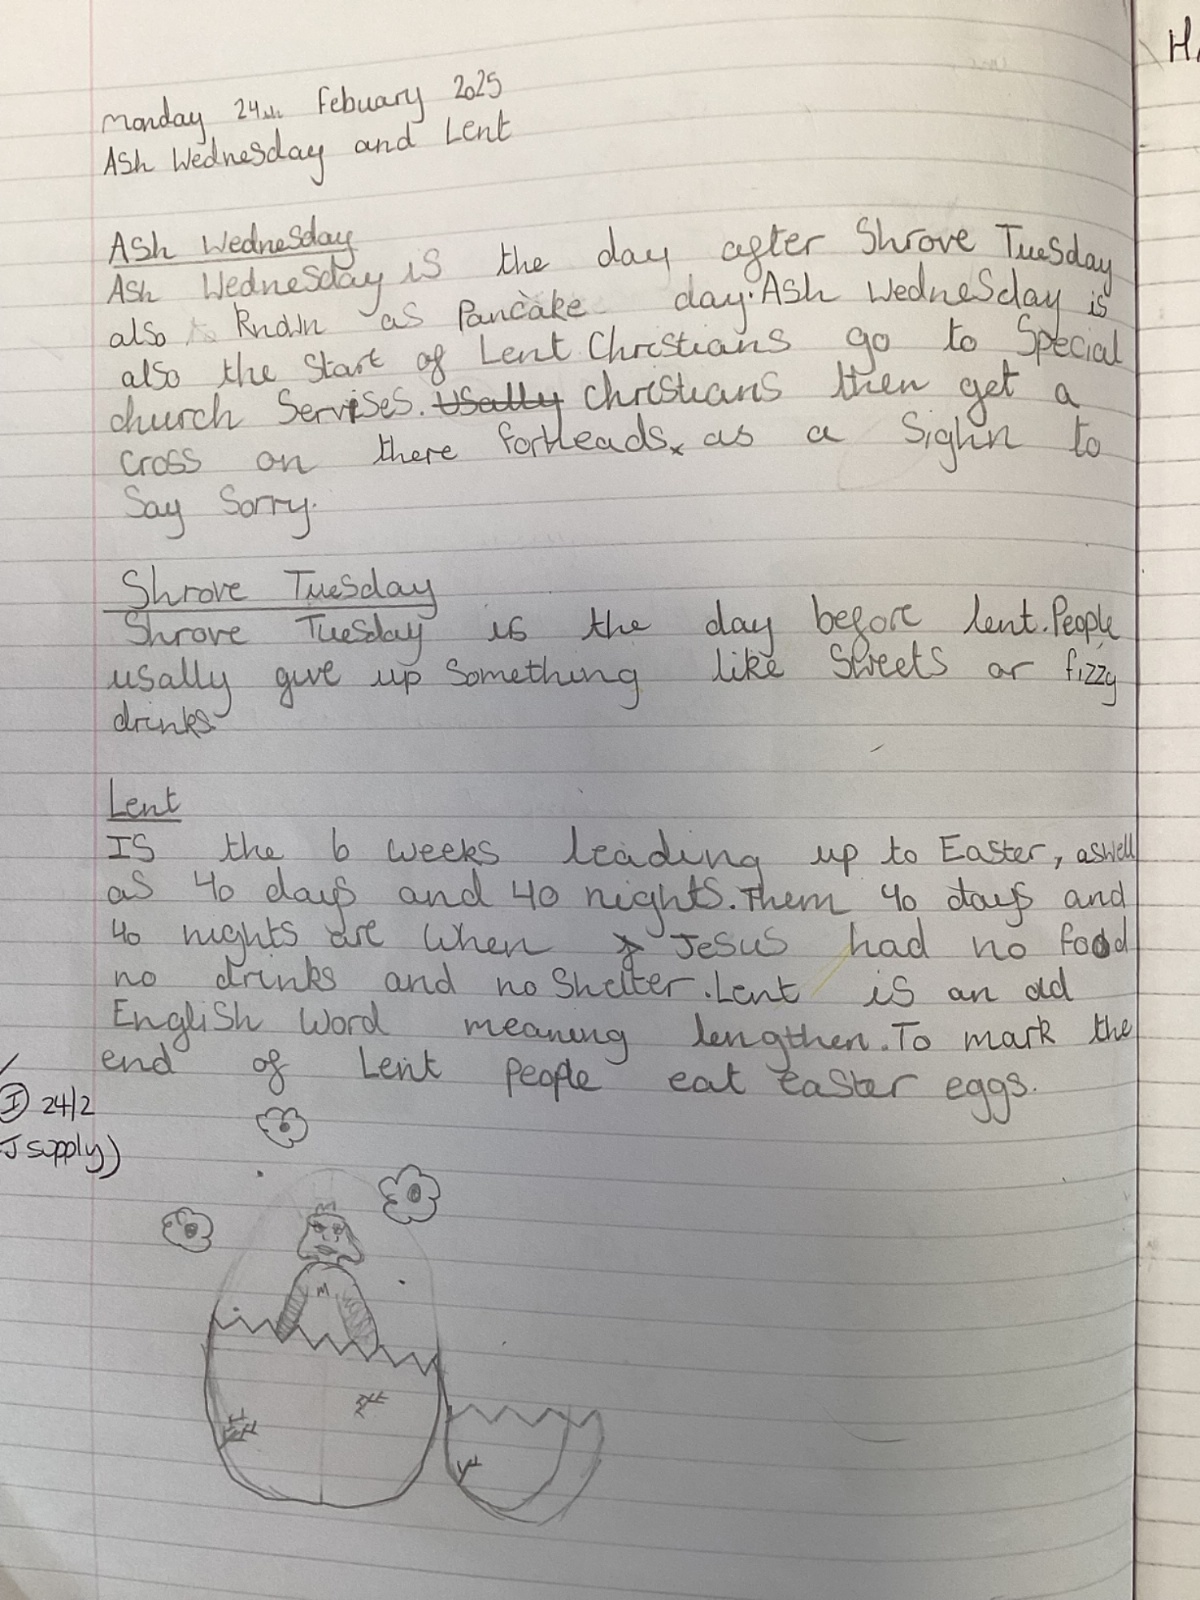 Monday 24th Febuary 2025
Ash Wednesday and Lent
Ash Wednesday
Ash Wednesday is the day after Shrove Tuesday
also known as Pancake day. Ash Wednesday is
also the start of Lent. Christians go to special
church servises. Usally Christians then get a
cross on there forheads as a sighn to
say sorry.
Shrove Tuesday
Shrove Tuesday is the day before lent. People
usally give up something like sweets or fizzy
drinks
Lent
Is the 6 weeks leading up to Easter, aswell
as 40 days and 40 nights. Them 40 days and
40 nights are when Jesus had no food
no drinks and no shelter. Lent is an old
English word meaning lengthen. To mark the
end of Lent people eat easter eggs.
I 24/2
J supply)
M
H